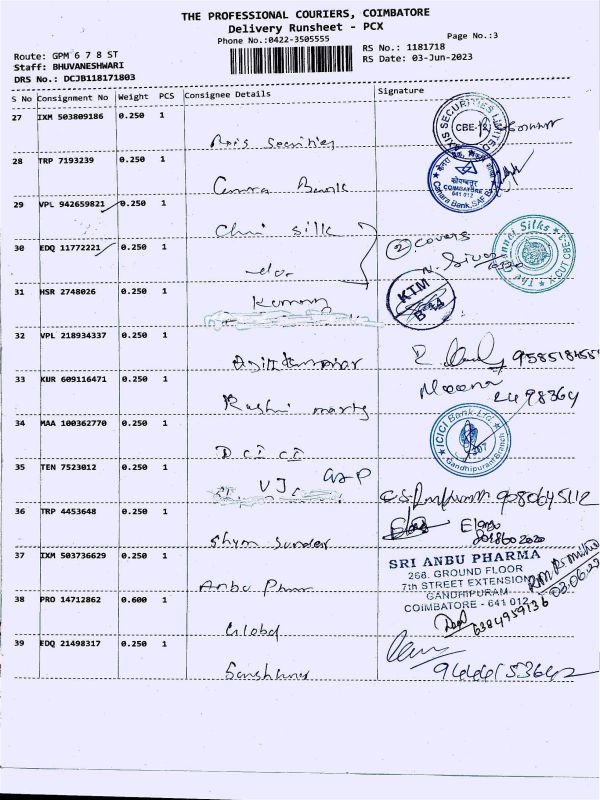 THE PROFESSIONAL COURIERS, COIMBATORE
Delivery Runsheet - PCX
Phone No.:0422-3505555
Page No.:3
Route: GPM 6 7 8 ST
RS No.: 1181718
Staff: BHUVANESHWARI
RS Date: 03-Jun-2023
DRS No.: DCJB118171803
S No Consignment No Weight PCS Consignee Details Signature
27 IXM 503809186 0.250 1
Securities
SECURITIES LIMITED
CBE-12
28 TRP 7193239 0.250 1
Canara Bank
COIMBATORE
641 012
Canara Bank,
29 VPL 942659821 0.250 1
silk
② covers
30 EDQ 11772221 0.250 1
-do-
N. Siva
The Chennai Silks
X-CUT CBE
31 HSR 2748026 0.250 1
KTM
B-14
32 VPL 218934337 0.250 1
R
33 KUR 609116471 0.250 1
Meena
34 MAA 100362770 0.250 1
ICICI Bank Ltd
Gandhipuram Branch
35 TEN 7523012 0.250 1
VJ
9080645112
36 TRP 4453648 0.250 1
Shyam Sunder
37 IXM 503736629 0.250 1
Anbu
SRI ANBU PHARMA
268. GROUND FLOOR
7th STREET EXTENSION
GANDHIPURAM
COIMBATORE - 641 012
03.06.23
6384959136
38 PRO 14712862 0.600 1
Global
39 EDQ 21498317 0.250 1
9444153642